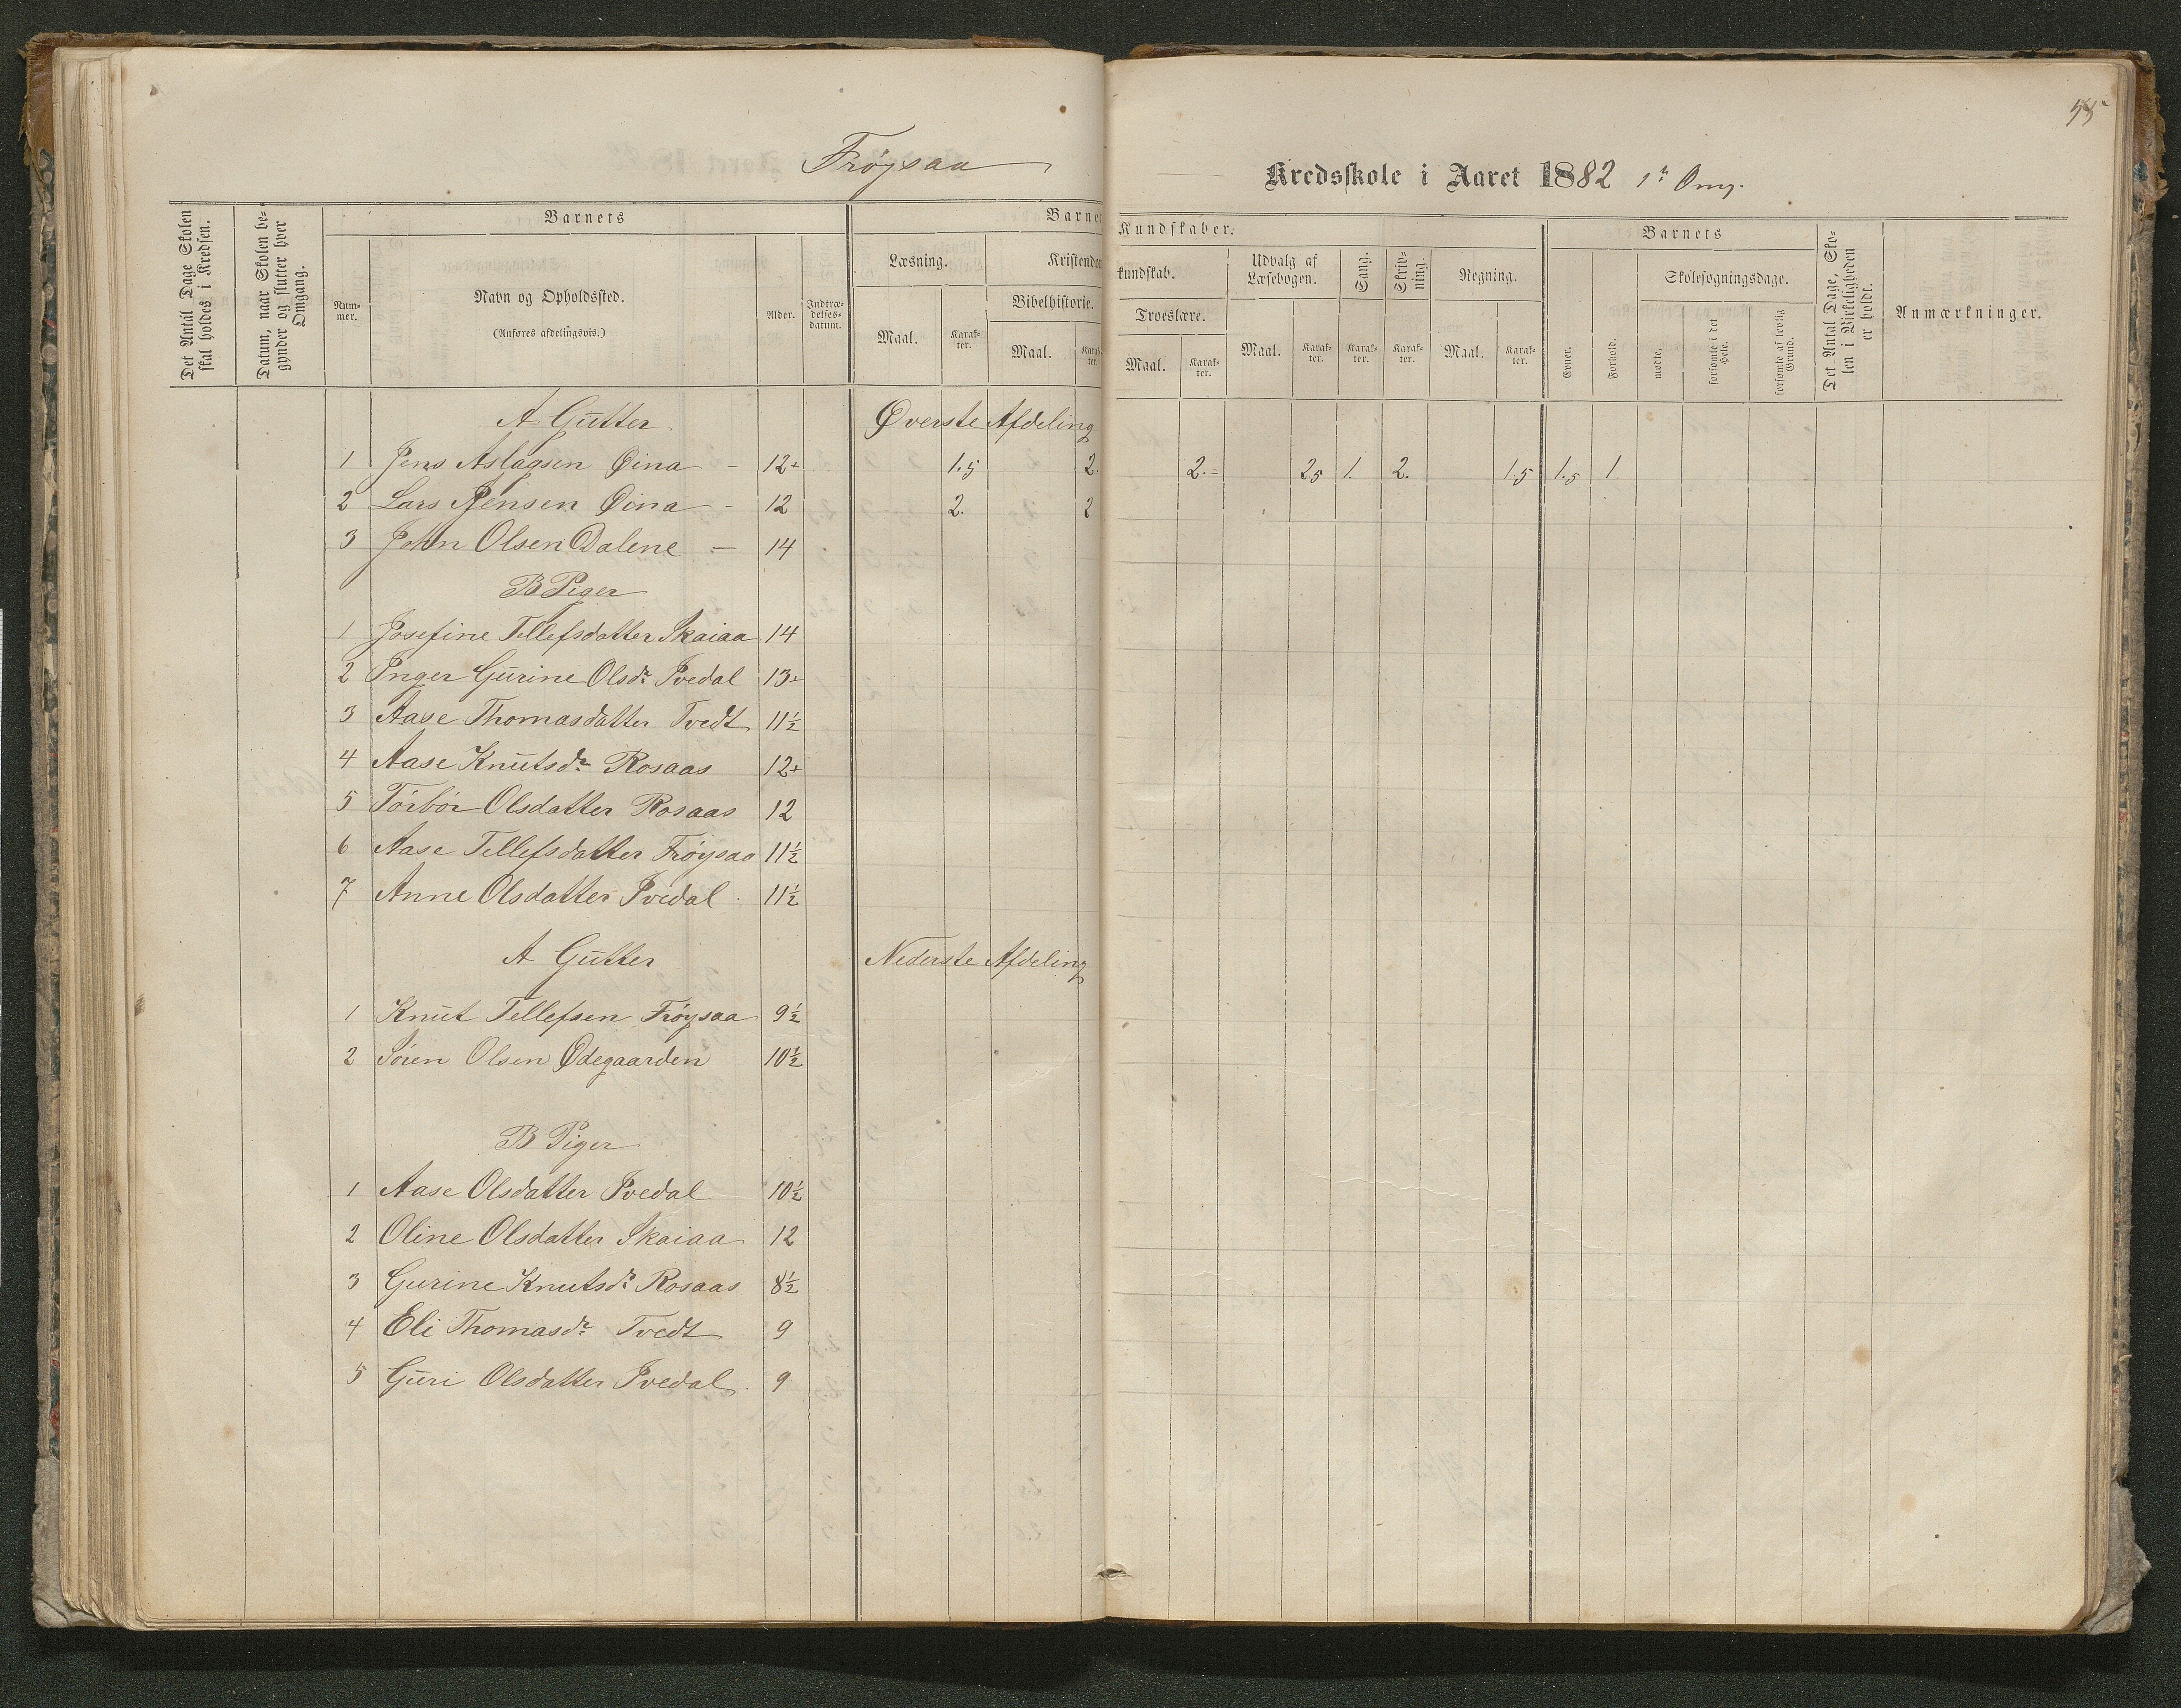 55
Frøysaa
Kredsskole i Aaret 1882 1ste Omg.
Det Antal Dage Skolen skal holdes i Kredsen.
Datum, naar Skolen begynder og slutter hver Omgang.
Barnets
Nummer.
Navn og Opholdssted.
(Anføres afdelingsvis.)
Alder.
Indtrædelsesdatum.
Barnets Kundskaber.
Læsning.
Maal.
Karakter.
Kristendomskundskab.
Bibelhistorie.
Maal.
Karakter.
Troeslære.
Maal.
Karakter.
Udvalg af Læsebogen.
Maal.
Karakter.
Sang.
Karakter.
Skrivning.
Karakter.
Regning.
Maal.
Karakter.
Barnets
Evner.
Forhold.
Skolesøgningsdage.
mødte.
forsømte i det Hele.
forsømte af lovlig Grund.
Det Antal Dage, Skolen i Virkeligheden er holdt.
Anmærkninger.
A Gutter Øverste Afdeling
1 Jens Aslagsen Øina - 12+ 1.5 2. 2.- 2.5 1. 2. 1.5 1.5 1
2 Lars Jensen Øina - 12 2. 2
3 John Olsen Dalene - 14
B Piger
1 Josefine Tellefsdatter Skaiaa 14
2 Inger Gurine Olsdr Ivedal 13+
3 Aase Thomasdatter Tvedt 11½
4 Aase Knutsdr Rosaas 12+
5 Torbør Olsdatter Rosaas 12
6 Aase Tellefsdatter Frøysaa 11½
7 Anne Olsdatter Ivedal 11½
A Gutter Nederste Afdeling
1 Knut Tellefsen Frøysaa 9½
2 Søren Olsen Ødegaarden 10½
B Piger
1 Aase Olsdatter Ivedal 10½
2 Oline Olsdatter Skaiaa 12
3 Gurine Knutsdr Rosaas 8½
4 Eli Thomasdr Tvedt 9
5 Guri Olsdatter Ivedal 9